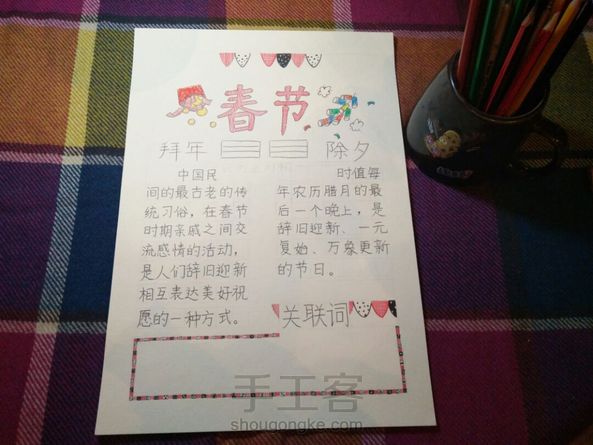 春节
拜年
除夕
中国民
间的最古老的传
统习俗，在春节
时期亲戚之间交
流感情的活动，
是人们辞旧迎新
相互表达美好祝
愿的一种方式。
时值每
年农历腊月的最
后一个晚上，是
辞旧迎新、一元
复始、万象更新
的节日。
关联词
手工客
shougongke.com